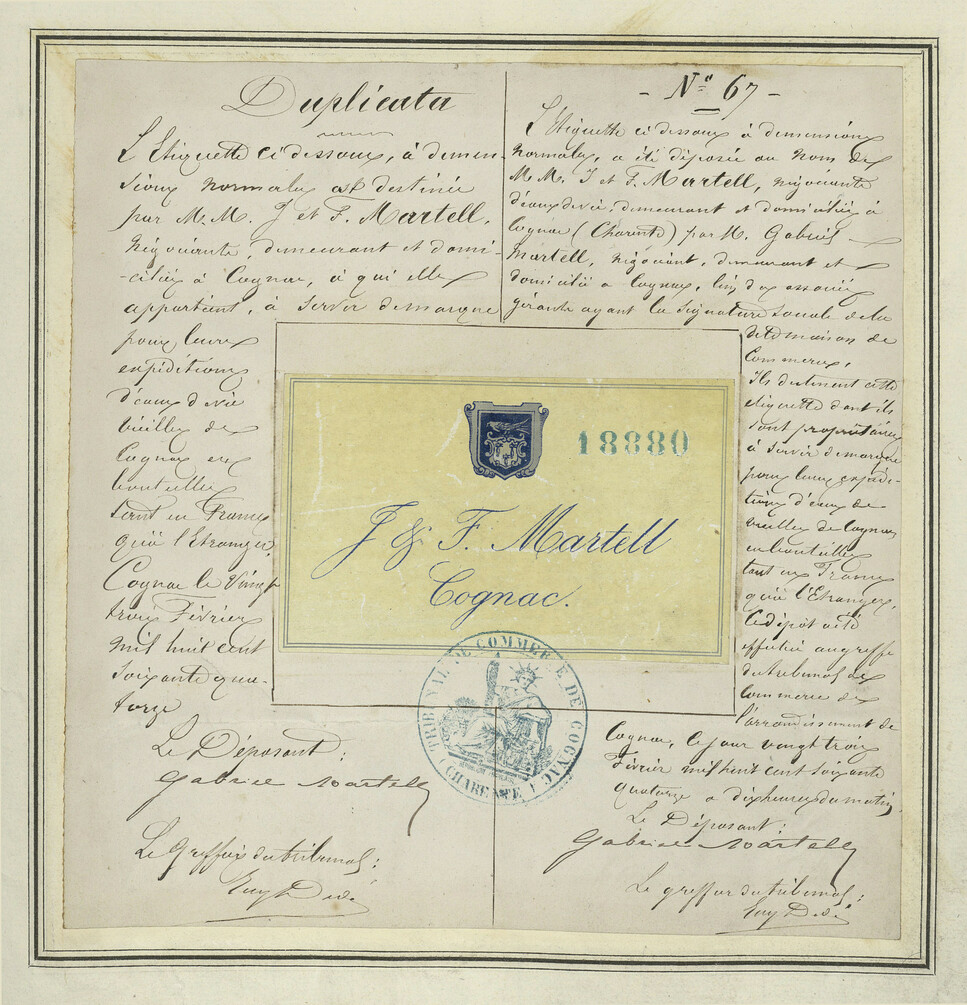 Duplicata
L'Etiquette ci dessous, à dimen-
sions normales est destinée
par M.M. J et F. Martell,
négociants, demeurant et domi-
-ciliés à Cognac, à qui elle
appartient, à servir de marque
pour leurs
expéditions
d'eaux de vie
vieilles de
Cognac en
bouteilles
tant en France
qu'à l'Etranger.
Cognac le Vingt
trois Février
mil huit cent
soixante qua-
torze
Le Déposant:
Gabriel Martell
Le Greffier du tribunal:
- N° 67 -
L'Etiquette ci dessous à dimensions
normales, a été déposée au nom de
M.M. J et F. Martell, négociants
d'eaux de vie, demeurant et domiciliés à
Cognac (Charente) par M. Gabriel
Martell, négociant, demeurant et
domicilié à Cognac, l'un des associés
gérants ayant la signature sociale de la
dite maison de
Commerce.
Ils destinent cette
étiquette dont ils
sont propriétaires
à servir de marque
pour leurs expédi-
tions d'eaux de vie
vieilles de Cognac
en bouteilles
tant en France
qu'à l'Etranger.
Ce dépôt a été
effectué au greffe
du tribunal de
Commerce de
l'arrondissement de
Cognac, ce jour vingt trois
Février mil huit cent soixante
quatorze à dix heures du matin.
Le Déposant:
Gabriel Martell
Le greffier du tribunal:
18880
J & F. Martell
Cognac.
TRIBUNAL DE COMMERCE DE COGNAC
(CHARENTE)